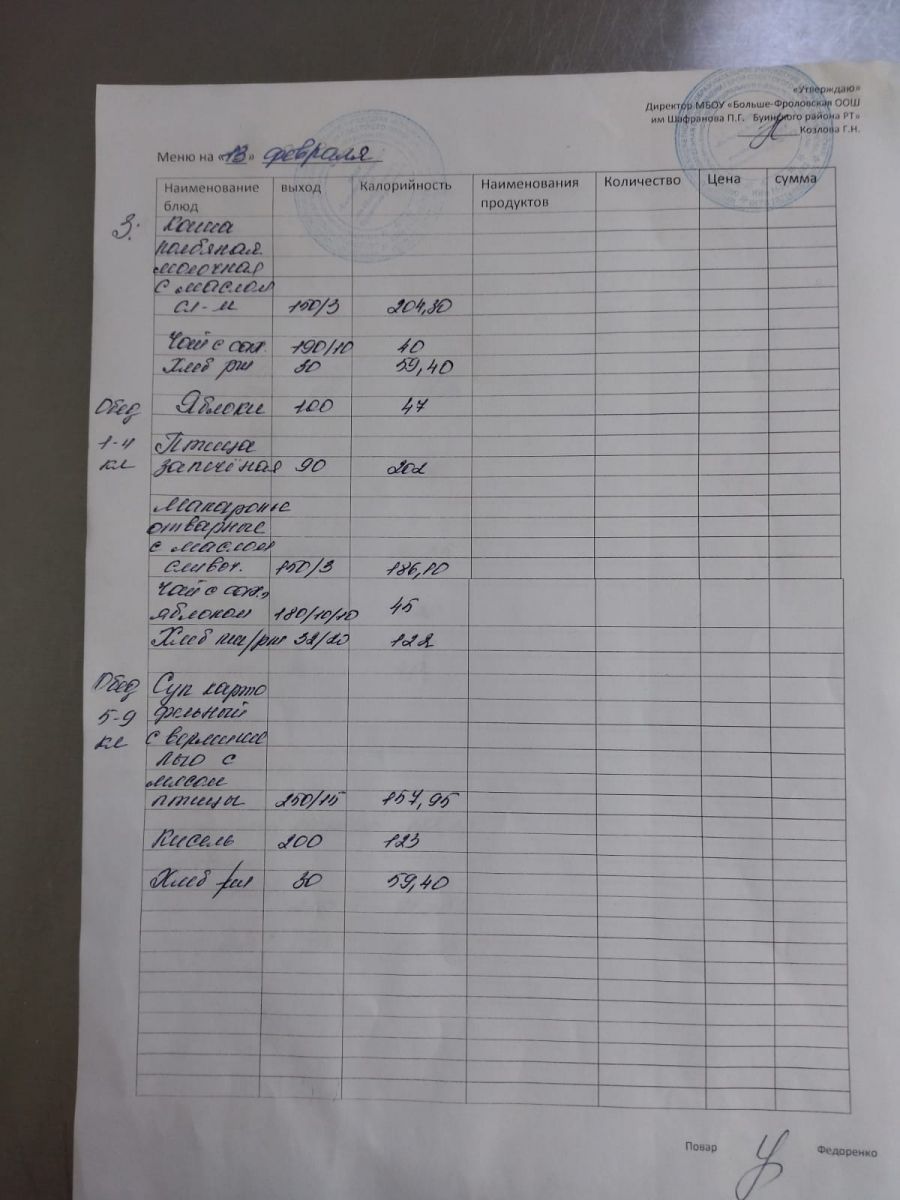 «Утверждаю»
Директор МБОУ «Больше-Фроловская ООШ
им Шафранова П.Г. Буинского района РТ»
Козлова Г.Н.
Меню на «13» февраля
Наименование блюд выход Калорийность Наименования продуктов Количество Цена сумма
З. Каша
полбяная
молочная
с маслом
сл-м 150/3 204,30
Чай с сах. 190/10 40
Хлеб рж 30 59,40
Обед Яблоки 100 47
1-4 Птица
кл запечёная 90 202
Макароны
отварные
с маслом
сливоч. 150/3 186,10
Чай с сах,
яблоком 180/10/10 45
Хлеб пш/рж 32/20 122
Обед Суп карто
5-9 фельный
кл с вермише
лью с
мясом
птицы 250/15 157,95
Кисель 200 123
Хлеб рж 30 59,40
Повар Федоренко